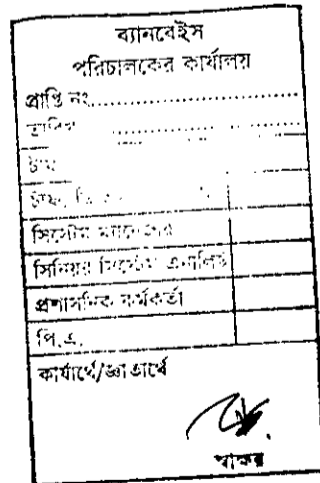 ব্যানবেইস
পরিচালকের কার্যালয়
প্রাপ্তি নং..............................
তারিখ ..............................
সিস্টেম ম্যানেজার
সিনিয়র সিস্টেম এনালিষ্ট
প্রশাসনিক কর্মকর্তা
পি.এ.
কার্যার্থে/জ্ঞাতার্থে
স্বাক্ষর